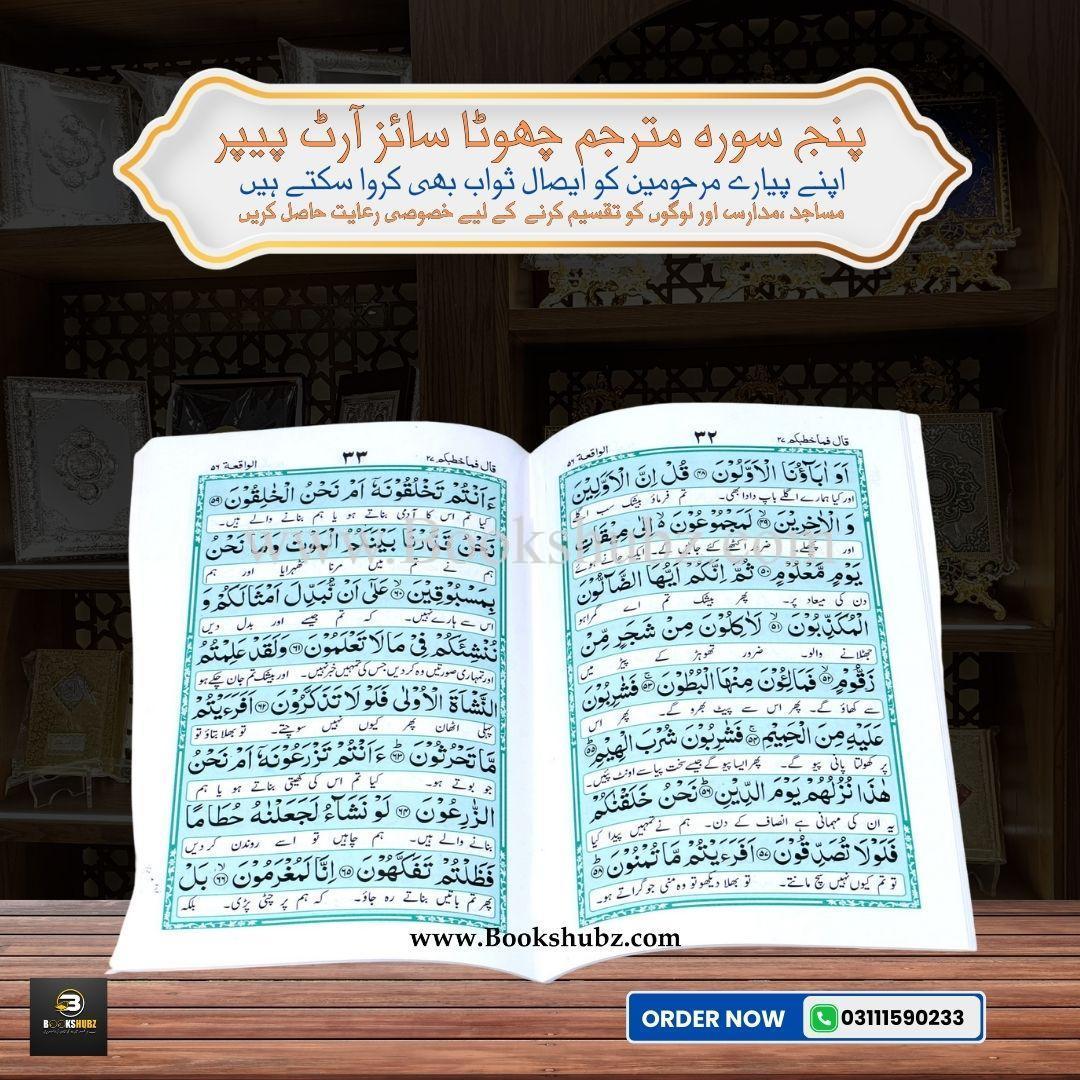 پنج سورہ مترجم چھوٹا سائز آرٹ پیپر
اپنے پیارے مرحومین کو ایصال ثواب بھی کروا سکتے ہیں
مساجد ،مدارس اور لوگوں کو تقسیم کرنے کے لیے خصوصی رعایت حاصل کریں
قال فماخطبکم ٢٧
٣٢
الواقعة ٥٦
اَوَ اٰبَآؤُنَا الْاَوَّلُوْنَ ﴿٤٨﴾ قُلْ اِنَّ الْاَوَّلِيْنَ
اور کیا ہمارے اگلے باپ دادا بھی۔ تم فرماؤ بیشک سب اگلے
وَ الْاٰخِرِيْنَ ﴿٤٩﴾ لَمَجْمُوْعُوْنَ ۙ اِلٰى مِيْقَاتِ
اور پچھلے۔ ضرور اکٹھے کیے جائیں گے ایک جانے ہوئے
يَوْمٍ مَّعْلُوْمٍ ﴿٥٠﴾ ثُمَّ اِنَّكُمْ اَيُّهَا الضَّآلُّوْنَ
دن کی میعاد پر۔ پھر بیشک تم اے گمراہو
الْمُكَذِّبُوْنَ ﴿٥١﴾ لَاٰكِلُوْنَ مِنْ شَجَرٍ مِّنْ
جھٹلانے والو۔ ضرور تھوہڑ کے پیڑ میں
زَقُّوْمٍ ﴿٥٢﴾ فَمَالِـُٔوْنَ مِنْهَا الْبُطُوْنَ ﴿٥٣﴾ فَشٰرِبُوْنَ
سے کھاؤ گے۔ پھر اس سے پیٹ بھرو گے۔ پھر اس
عَلَيْهِ مِنَ الْحَمِيْمِ ﴿٥٤﴾ فَشٰرِبُوْنَ شُرْبَ الْهِيْمِ ﴿٥٥﴾
پر کھولتا پانی پیو گے۔ پھر ایسا پیو گے جیسے سخت پیاسے اونٹ پئیں۔
هٰذَا نُزُلُهُمْ يَوْمَ الدِّيْنِ ﴿٥٦﴾ نَحْنُ خَلَقْنٰكُمْ
یہ ان کی مہمانی ہے انصاف کے دن۔ ہم نے تمہیں پیدا کیا
فَلَوْلَا تُصَدِّقُوْنَ ﴿٥٧﴾ اَفَرَءَيْتُمْ مَّا تُمْنُوْنَ ﴿٥٨﴾
تو تم کیوں نہیں سچ مانتے۔ تو بھلا دیکھو تو وہ منی جو گراتے ہو۔
قال فماخطبکم ٢٧
٣٣
الواقعة ٥٦
ءَاَنْتُمْ تَخْلُقُوْنَهٗٓ اَمْ نَحْنُ الْخٰلِقُوْنَ ﴿٥٩﴾
کیا تم اس کا آدمی بناتے ہو یا ہم بنانے والے ہیں۔
نَحْنُ قَدَّرْنَا بَيْنَكُمُ الْمَوْتَ وَمَا نَحْنُ
ہم نے تم میں مرنا ٹھہرایا اور ہم
بِمَسْبُوْقِيْنَ ﴿٦٠﴾ عَلٰٓى اَنْ نُّبَدِّلَ اَمْثَالَكُمْ وَ
اس سے ہارے نہیں۔ کہ تم جیسے اور بدل دیں
نُنْشِئَكُمْ فِيْ مَا لَا تَعْلَمُوْنَ ﴿٦١﴾ وَلَقَدْ عَلِمْتُمُ
اور تمہاری صورتیں وہ کردیں جس کی تمہیں خبر نہیں۔ اور بیشک تم جان چکے ہو
النَّشْاَةَ الْاُوْلٰى فَلَوْلَا تَذَكَّرُوْنَ ﴿٦٢﴾ اَفَرَءَيْتُمْ
پہلی اٹھان پھر کیوں نہیں سوچتے۔ تو بھلا بتاؤ تو
مَّا تَحْرُثُوْنَ ﴿٦٣﴾ ءَاَنْتُمْ تَزْرَعُوْنَهٗٓ اَمْ نَحْنُ
جو بوتے ہو۔ کیا تم اس کی کھیتی بناتے ہو یا ہم
الزّٰرِعُوْنَ ﴿٦٤﴾ لَوْ نَشَآءُ لَجَعَلْنٰهُ حُطَامًا
بنانے والے ہیں۔ ہم چاہیں تو اسے روندن کردیں
فَظَلْتُمْ تَفَكَّهُوْنَ ﴿٦٥﴾ اِنَّا لَمُغْرَمُوْنَ ﴿٦٦﴾ بَلْ
پھر تم باتیں بناتے رہ جاؤ۔ کہ ہم پر چٹی پڑی۔ بلکہ
www.Bookshubz.com
www.Bookshubz.com
BOOKSHUBZ
ORDER NOW
03111590233